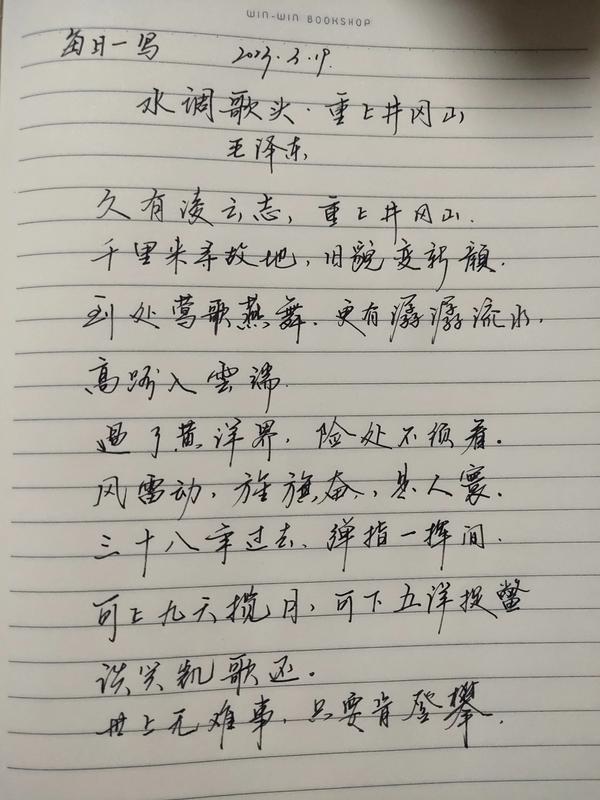 WIN-WIN BOOKSHOP
每日一写 2023.3.19.
水调歌头·重上井冈山
毛泽东
久有凌云志，重上井冈山.
千里来寻故地，旧貌变新颜.
到处莺歌燕舞.更有潺潺流水.
高路入雲端.
過了黄洋界，险处不须看.
风雷动，旌旗奋，是人寰.
三十八年过去.弹指一挥间.
可上九天揽月，可下五洋捉鳖
谈笑凯歌还。
世上无难事，只要肯登攀.